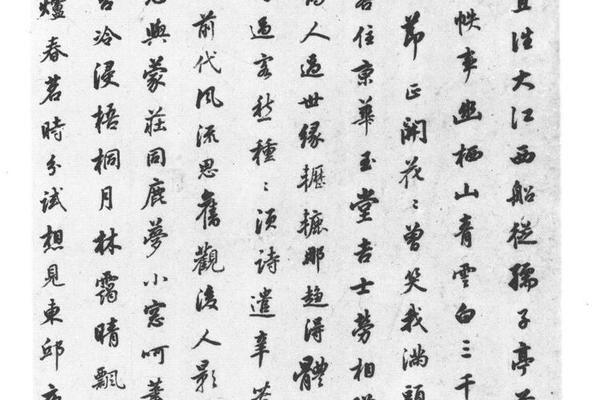 往大江西船從孺子亭
帙事幽栖山青雲白三千
節正開花〻曾笑我滿頭
住京華玉堂吉士勞相
人過世緣轣轆那趨得體
過客愁種〻須詩遣幸
前代風流思舊觀後人影
與蒙莊同鹿夢小窓呵
冷浸梧桐月林靄晴飄
爐春茗時分試想見東邱